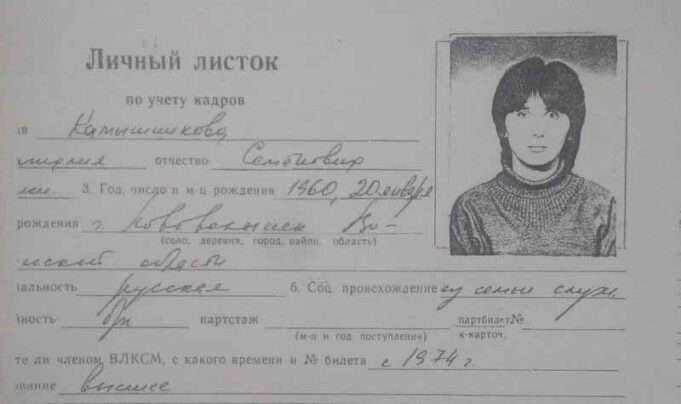 Личный листок
по учету кадров
ия Камышникова
отчество Семёновна
жен. 3. Год, число и м-ц рождения 1960, 20 января
рождения г.
(село, деревня, город, район, область)
ской области
альность русская 6. Соц. происхождение из семьи служ.
йность б/п партстаж партбилет №
(м-ц и год поступления) к-карточ.
те ли членом ВЛКСМ, с какого времени и № билета с 1974 г.
вание высшее